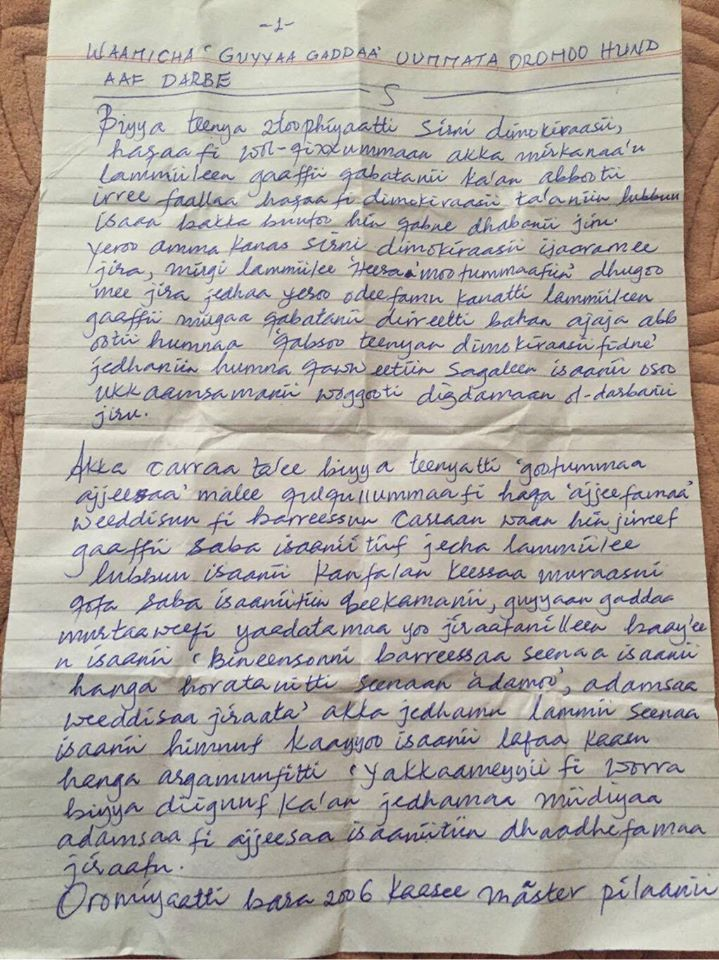 -1-
WAAMICHA 'GUYYAA GADDAA' UUMMATA OROMOO HUND
AAF DARBE
S
Biyya teenya itoophiyaatti sirni dimokiraasii,
haqaa fi wol-qixxummaan akka mirkanaa'u
lammiileen gaaffii qabatanii ka'an abbootii
irree faallaa haqaa fi dimokiraasii ta'aniin lubbuu
isaan bakka buutoo hin qabne dhabanii jiru.
yeroo amma kanas sirni dimokiraasii ijaaramee
jira, mirgi lammiilee 'Heeraa mootummaafiin' dhugoo
mee jira jedhaa yeroo odeefamu kanatti lammiileen
gaaffii mirgaa qabatanii dirreetti bahan ajaja abb
ootii humnaa 'qabsoo teenyaan dimokiraasii fidne'
jedhaniin humna qawweetiin sagaleen isaanii osoo
ukkaamsamanii woggooti digdamaan ol-darbanii
jiru.
Akka carraa ta'ee biyya teenyatti 'gootummaa
ajjeesaa' malee qulqullummaa fi haqa 'ajjeefamaa'
weeddisuu fi barreessuu carraan waan hin jirreef
gaaffii saba isaaniitiif jecha lammiilee
lubbuu isaanii kanfalan keessaa muraasni
gota saba isaaniitiin beekamanii, guyyaan gaddaa
murtaaweefi yaadatamaa yoo jiraatanilleen baay'ee
n isaanii 'Bineensonni barreessaa seenaa isaanii
hanga horatanitti seenaan adamoo', adamsaa
weeddisaa jiraata' akka jedhamu lammii seenaa
isaanii himnuf kaayyoo isaanii lafaa kaasu
hanga argamunfitti 'yakkaameyyii fi worra
biyya diiguuf ka'an jedhamaa miidiyaa
adamsaa fi ajjeesaa isaaniitiin dhaadhefamaa
jiraatu.
Oromiyaatti bara 2006 kaasee master pilaanii